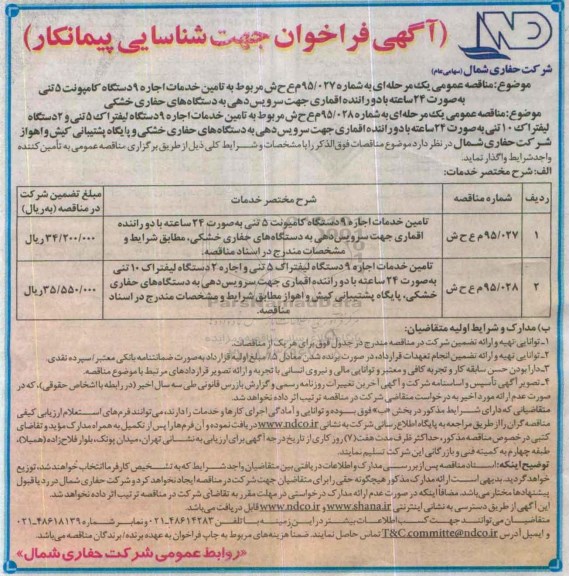 (آگهی فراخوان جهت شناسایی پیمانکار)
NDC
شرکت حفاری شمال (سهامی عام)
موضوع: مناقصه عمومی یک مرحله ای به شماره ۹۵/۰۲۷م ع ح ش مربوط به تامین خدمات اجاره ۹دستگاه کامیونت ۵ تنی
به‌صورت ۲۴ ساعته با دو راننده اقماری جهت سرویس دهی به دستگاه‌های حفاری خشکی
موضوع: مناقصه عمومی یک مرحله ای به شماره ۹۵/۰۲۸م ع ح ش مربوط به تامین خدمات اجاره ۹دستگاه لیفتراک ۵ تنی و ۲دستگاه
لیفتراک ۱۰ تنی به‌صورت ۲۴ ساعته با دو راننده اقماری جهت سرویس دهی به دستگاه های حفاری خشکی و پایگاه پشتیبانی کیش و اهواز
شرکت حفاری شمال در نظر دارد موضوع مناقصات فوق‌الذکر را با مشخصات و شرایط کلی ذیل از طریق برگزاری مناقصه عمومی به تأمین کننده
واجد شرایط واگذار نماید.
الف: شرح مختصر خدمات:
ردیف شماره مناقصه شرح مختصر خدمات مبلغ تضمین شرکت در مناقصه (به ریال)
۱ ۹۵/۰۲۷م ع ح ش تامین خدمات اجاره ۹ دستگاه کامیونت ۵ تنی به صورت ۲۴ ساعته با دو راننده ۳۴/۲۰۰/۰۰۰ ریال
اقماری جهت سرویس دهی به دستگاه‌های حفاری خشکی، مطابق شرایط و
مشخصات مندرج در اسناد مناقصه.
۲ ۹۵/۰۲۸م ع ح ش تامین خدمات اجاره ۹ دستگاه لیفتراک ۵ تنی و اجاره ۲ دستگاه لیفتراک ۱۰ تنی ۳۵/۵۵۰/۰۰۰ ریال
به صورت ۲۴ ساعته با دو راننده اقماری جهت سرویس دهی به دستگاه‌های حفاری
خشکی، پایگاه پشتیبانی کیش و اهواز مطابق شرایط و مشخصات مندرج در اسناد
مناقصه.
ParsNamadData
ب) مدارک و شرایط اولیه متقاضیان:
۱- توانایی تهیه و ارائه تضمین شرکت در مناقصه مندرج در جدول فوق برای هر یک از مناقصات.
۲- توانایی تهیه و ارائه تضمین انجام تعهدات قرارداد، در صورت برنده شدن معادل ۵٪ مبلغ اولیه قرارداد به صورت ضمانتنامه بانکی معتبر/سپرده نقدی.
۳- دارا بودن حسن سابقه کار و تجربه کافی و معتبر و توانایی مالی و نیروی انسانی با تجربه و ارائه تصویر قراردادهای مرتبط با موضوع مناقصه.
۴- تصویر آگهی تأسیس و اساسنامه شرکت و آگهی آخرین تغییرات روزنامه رسمی و گزارش بازرس قانونی طی سه سال اخیر (در رابطه با اشخاص حقوقی)، که در
صورت عدم ارائه مورد اخیر به درخواست متقاضی شرکت در مناقصه ترتیب اثر داده نخواهد شد.
متقاضیانی که دارای شرایط مذکور در بخش «ب» فوق بوده و توانایی و آمادگی اجرای کارها و خدمات را دارند، می توانند فرم های استعلام ارزیابی کیفی
مناقصه گران را از طریق مراجعه به پایگاه اطلاع رسانی شرکت به نشانی www.ndco.ir دریافت نموده و آن فرم ها را پس از تکمیل به همراه مدارک مؤید و تقاضای
کتبی در خصوص مناقصه مذکور، حداکثر ظرف مدت هفت (۷) روز کاری از تاریخ درج آگهی برای ارزیابی به نشانی تهران، میدان پونک، بلوار فلاح زاده (همیلا)،
طبقه چهارم به کمیته فنی و بازرگانی این شرکت تسلیم نمایند.
توضیح اینکه: اسناد مناقصه پس از بررسی مدارک و اطلاعات دریافتی بین متقاضیان واجد شرایط که به تشخیص کارفرما انتخاب خواهند شد، توزیع
خواهد گردید. بدیهی است ارائه مدارک مذکور هیچگونه حقی را برای متقاضیان جهت شرکت در مناقصه ایجاد نخواهد کرد و شرکت حفاری شمال در رد یا قبول
پیشنهادها مختار می باشد. مضافا اینکه در صورت عدم ارائه مدارک درخواستی در مهلت مقرر به تقاضای شرکت در مناقصه ترتیب اثر داده نخواهد شد.
این آگهی از طریق دسترسی به نشانی اینترنتی www.shana.ir و www.ndco.ir قابل دریافت می باشد.
متقاضیان می توانند جهت کسب اطلاعات بیشتر در این زمینه با تلفن ۴۸۶۱۴۲۸۳-۰۲۱ و نمابر شماره ۴۸۶۱۸۱۳۹-۰۲۱
و ایمیل آدرس T&C.committe@ndco.ir تماس حاصل نمایند. ضمنا هزینه های مربوط به چاپ فراخوان به عهده برنده/برندگان مناقصه می باشد.
«روابط عمومی شرکت حفاری شمال»